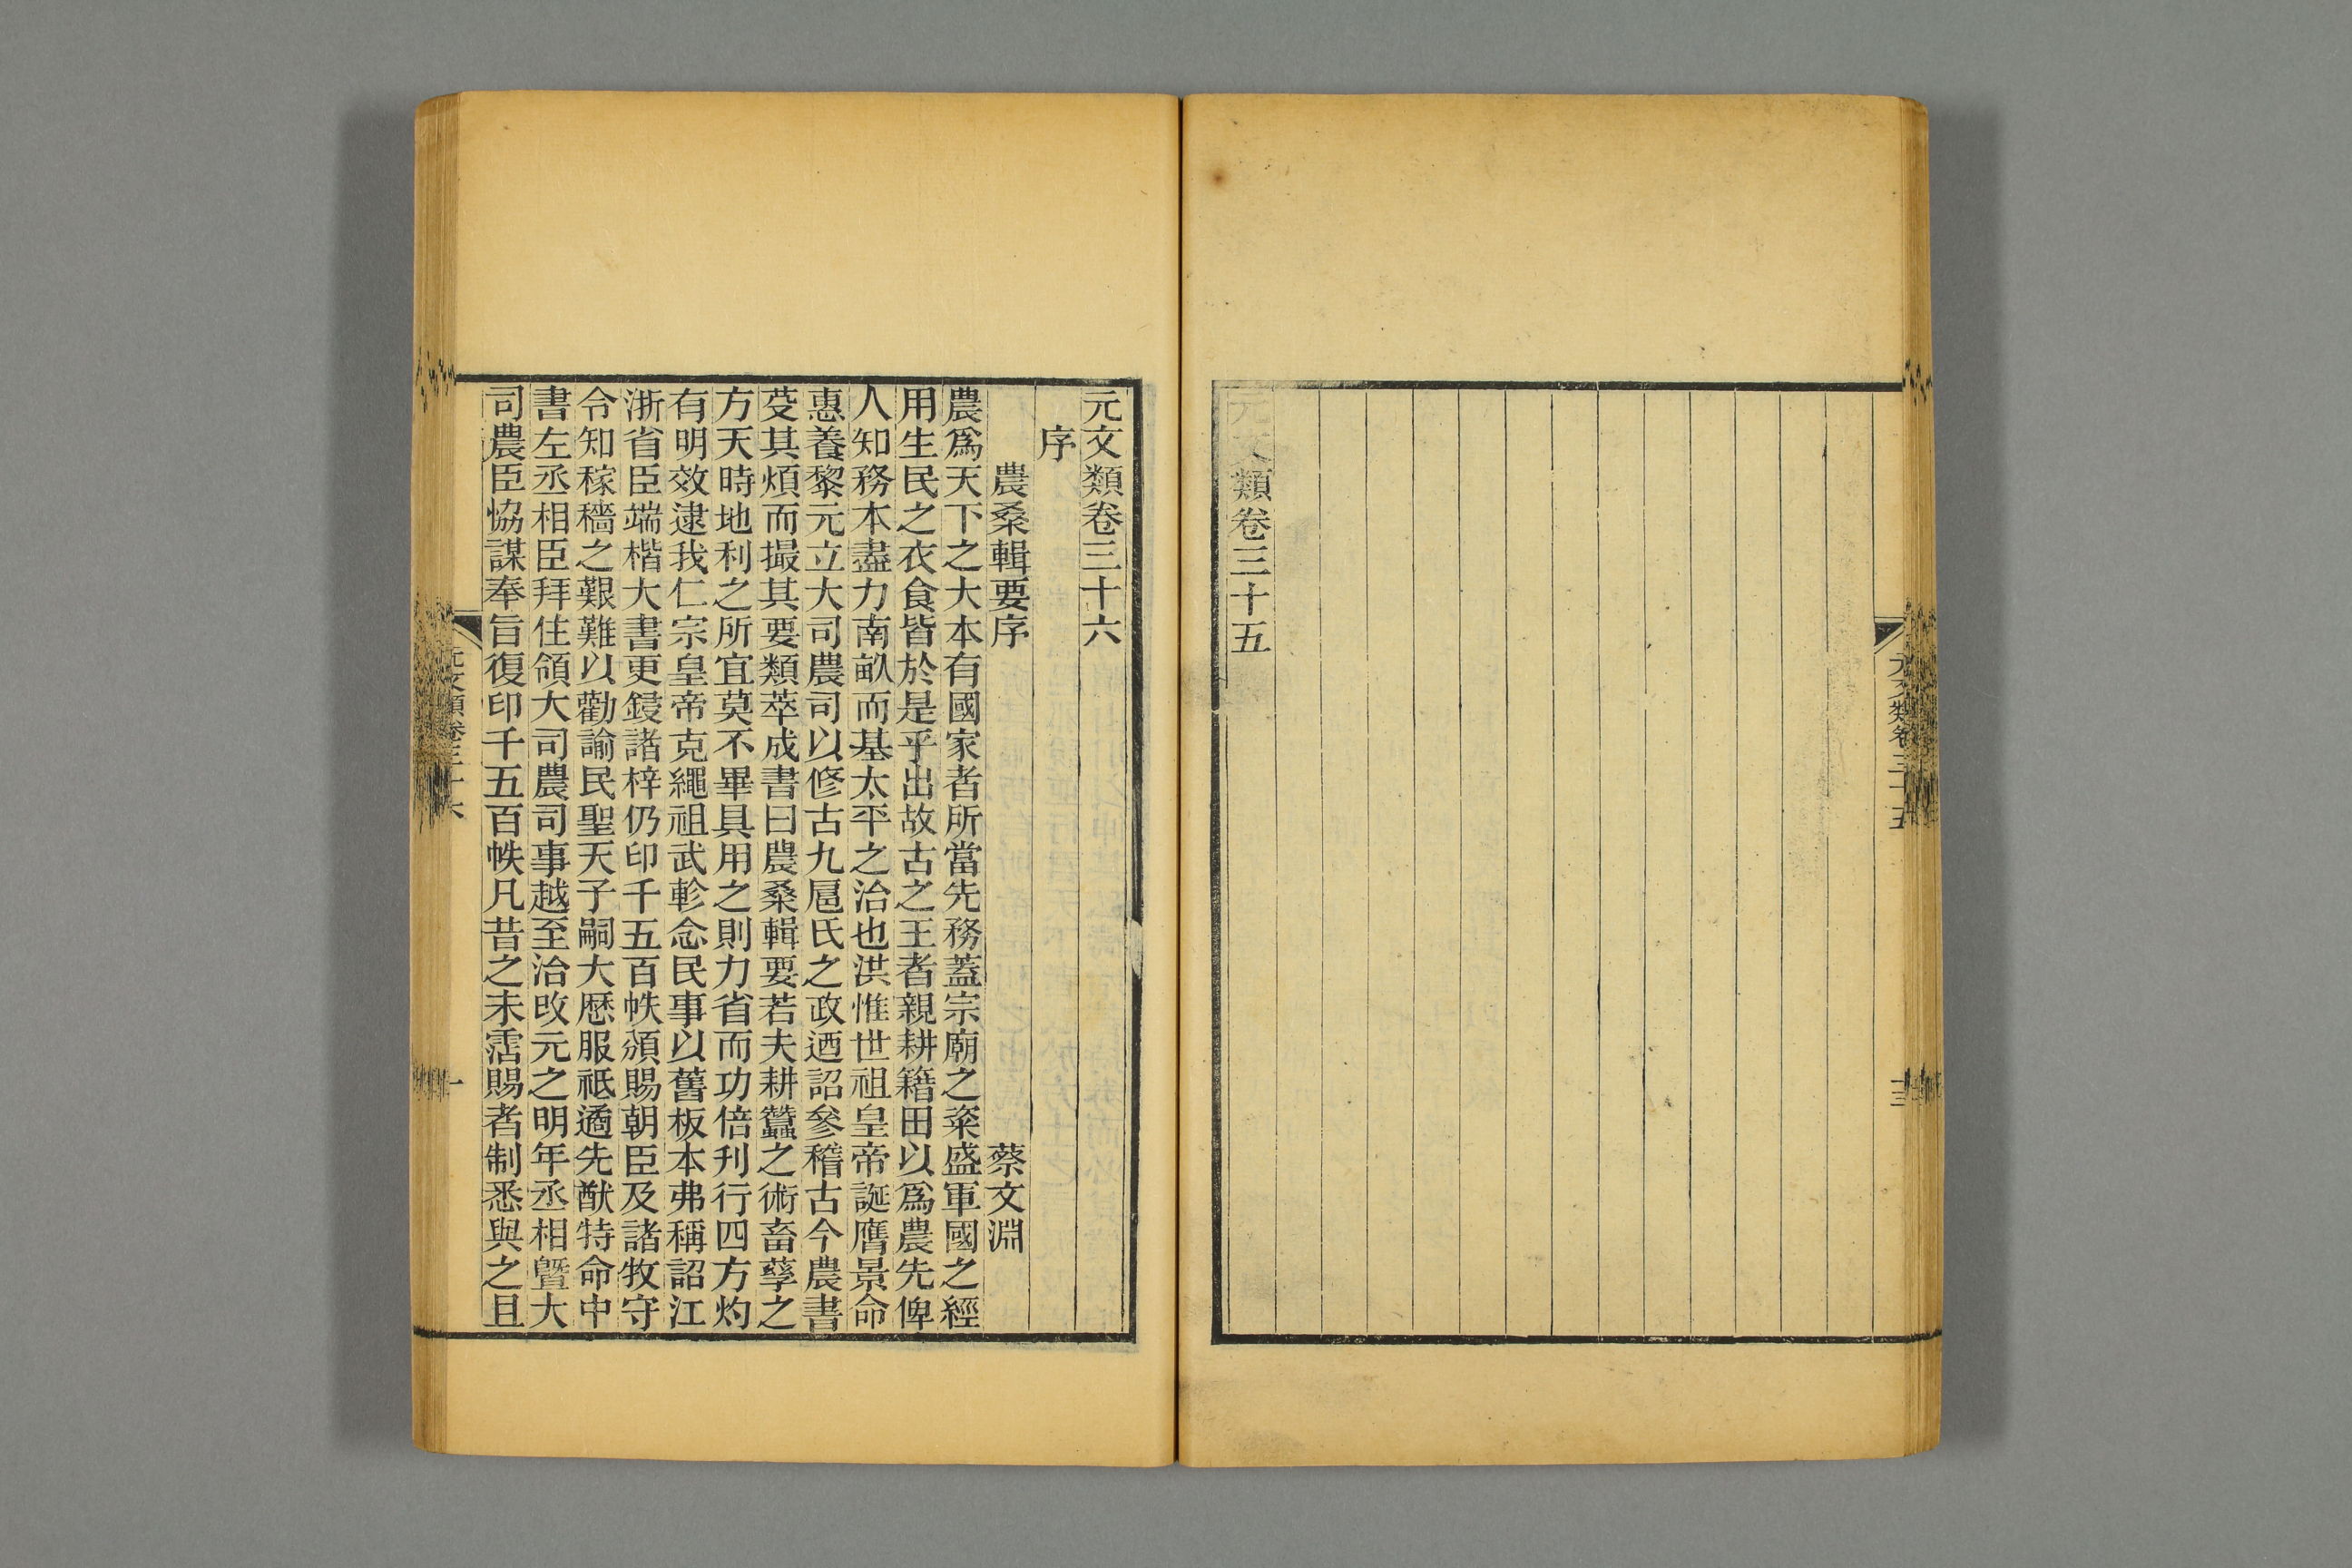 元文類卷三十五
元文類卷三十五
十三
元文類卷三十六
序
農桑輯要序 蔡文淵
農爲天下之大本有國家者所當先務蓋宗廟之粢盛軍國之經
用生民之衣食皆於是乎出故古之王者親耕籍田以爲農先俾
人知務本盡力南畝而基太平之治也洪惟世祖皇帝誕膺景命
惠養黎元立大司農司以修古九扈氏之政迺詔參稽古今農書
芟其煩而撮其要類萃成書曰農桑輯要若夫耕蠶之術畜孳之
方天時地利之所宜莫不畢具用之則力省而功倍刋行四方灼
有明效逮我仁宗皇帝克繩祖武軫念民事以舊板本弗稱詔江
浙省臣端楷大書更鋟諸梓仍印千五百帙頒賜朝臣及諸牧守
令知稼穡之艱難以勸諭民聖天子嗣大厯服祗遹先猷特命中
書左丞相臣拜住領大司農司事越至治改元之明年丞相曁大
司農臣恊謀奉旨復印千五百帙凡昔之未霑賜者制悉與之且
元文類卷三十六
一